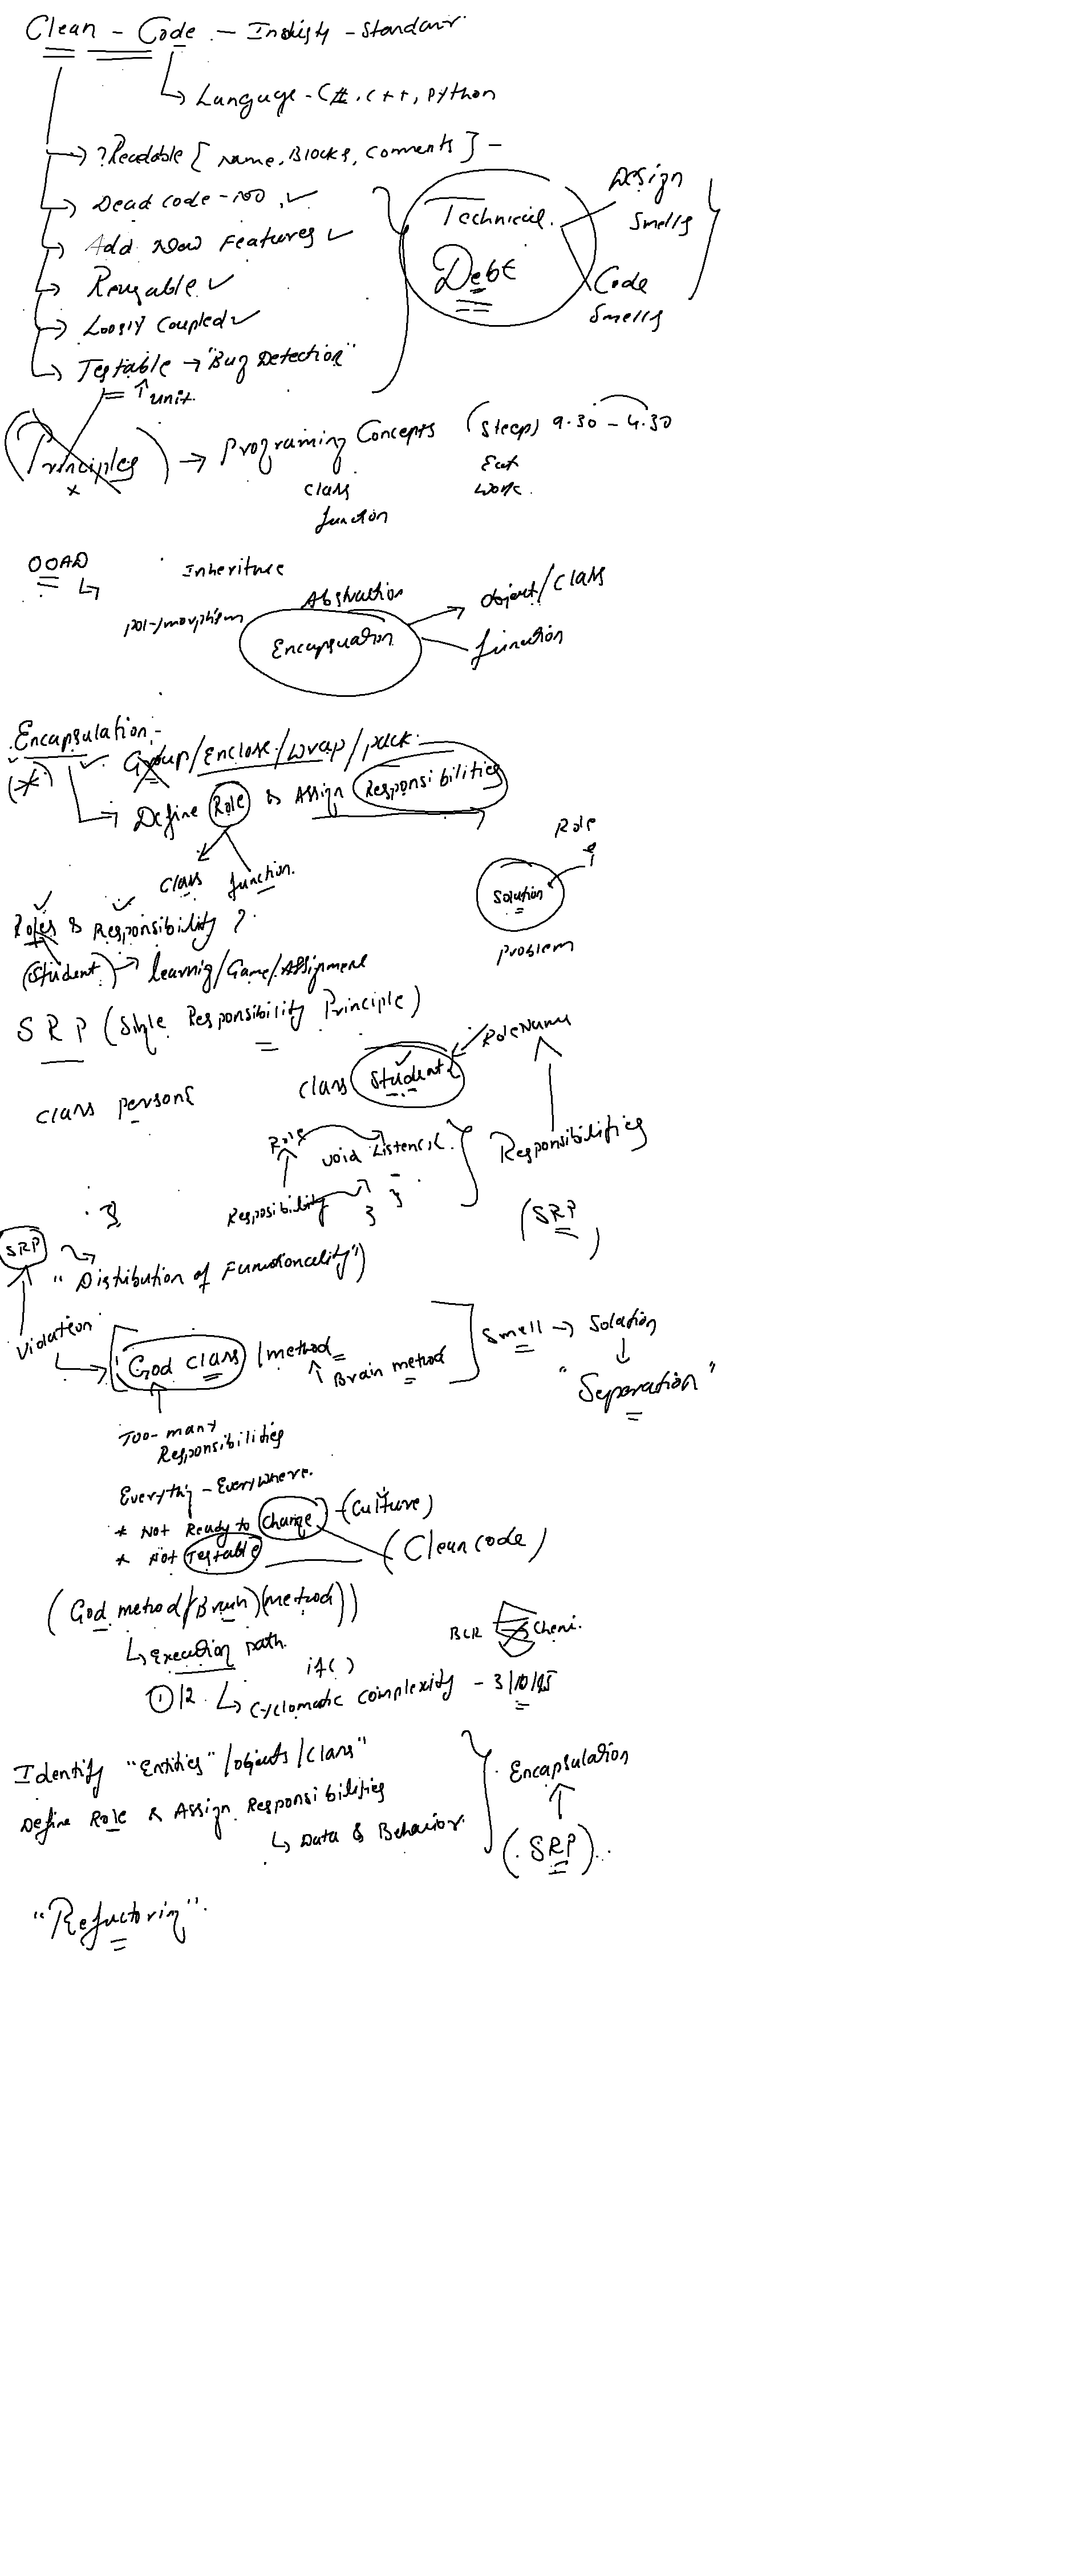 Clean - Code - Industry - Standard
Language - C#, C++, Python
? Readable [ Name, Blocks, Comments ] -
Dead code - No, ✓
Add New Features ✓
Reusable ✓
Loosly Coupled ✓
Testable → "Bug Detection"
↑ unit.
Technical.
Debt
Design
Smells
Code
Smells
(Principles) → Programing Concepts (Sleep) 9.30 - 4.30
x
Class
function
Eat
Work.
OOAD
Inheritance
Polymorphism
Abstraction
Encapsulation
Object/Class
function
Encapsulation :-
Group/Enclose/Wrap/pack
(*)
→ Define Role & Assign Responsibilities
Class function.
Role
Solution
Problem
Roles & Responsibility ?
(Student) → learnig/Game/Assignment
SRP (Single Responsibility Principle)
Class person {
}
Class Student {
Role Name
Role void Listen() {
Resposibility }
}
Responsibilities
(SRP)
SRP
"Distribution of Functionality")
Violation
God Class / method
↑ Brain method
Smell → Solution
↓
"Separation"
Too-many
Responsibilities
Everything - Everywhere.
* Not Ready to Change - (Culture)
* Not Testable
(Clean code)
(God method/Brain)(method))
Execution path.
if( )
1/2. Cyclomatic complexity - 3/10/15
Identify "Entities" /objects/class"
Define Role & Assign Responsibilities
Data & Behavior.
Encapsulation
↑
(SRP)..
"Refactoring".